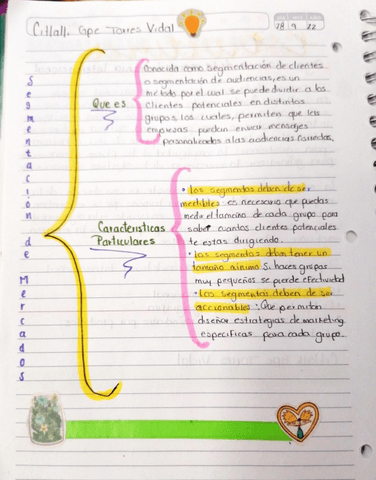 Citlali. Gpe Torres Vidal
28 9 22
Segmentación de Mercados
Que es
Conocida como segmentación de clientes
o segmentación de audiencias, es un
método por el cual se puede dividir a los
clientes potenciales en distintos
grupos, los cuales, permiten que las
empresas puedan enviar mensajes
personalizados a las audiencias correctas.
Características
Particulares
• Los segmentos deben de ser
medibles: es necesario que puedas
medir el tamaño de cada grupo para
saber cuantos clientes potenciales
te estas dirigiendo.
• Los segmentos deben tener un
tamaño mínimo Si haces grupos
muy pequeños se pierde efectividad
• Los segmentos deben de ser
accionables: Que permitan
diseñar estrategias de marketing
especificas para cada grupo.